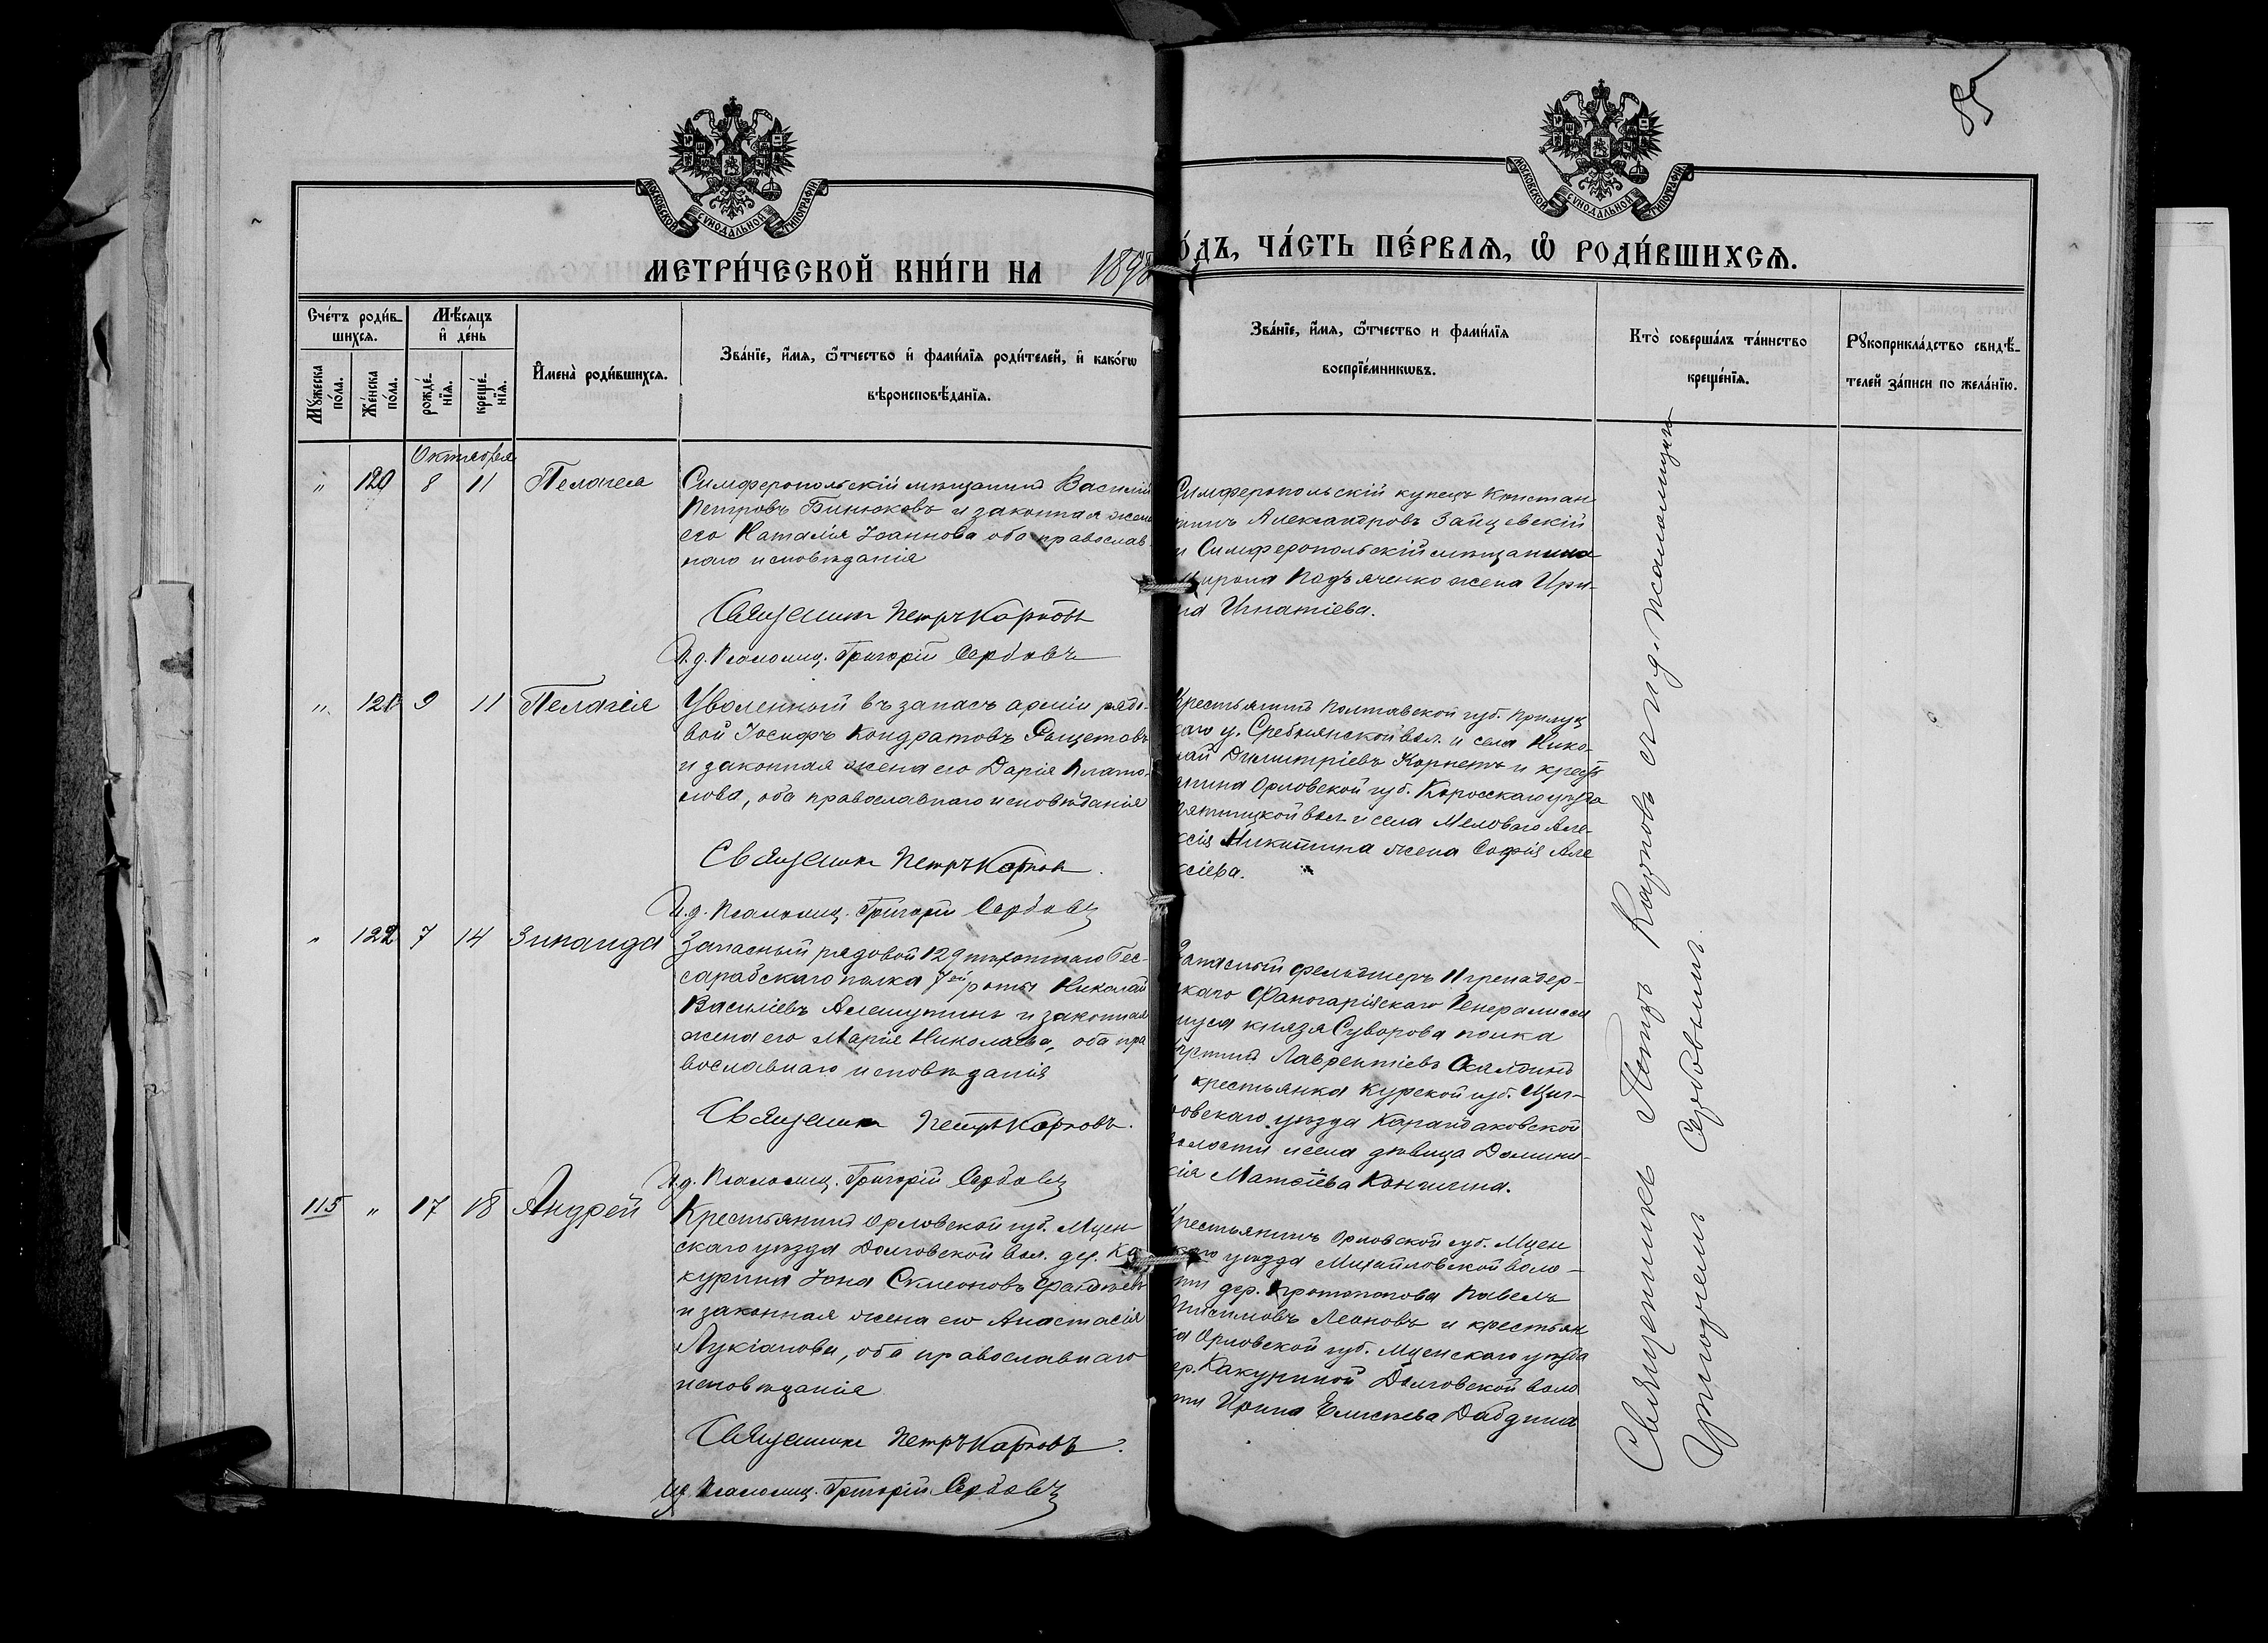 85
МОСКОВСКОЙ СУНОДАЛЬНОЙ ТИПОГРАФІИ
МОСКОВСКОЙ СУНОДАЛЬНОЙ ТИПОГРАФІИ
МЕТРИ́ЧЕСКОЙ КНИ́ГИ НА 189
ОДЪ, ЧА́СТЬ ПЕ́РВАѦ, Ѡ҆ РОДИ́ВШИХСѦ.
Сче́тъ роди́в-
шихсѧ.
Мꙋ́жеска по́ла.
Же́нска по́ла.
Мѣ́сяцъ и҆ де́нь
рожде́-нїѧ.
креще́-нїѧ.
И҆мена̀ роди́вшихсѧ.
Зва́нїе, и҆́мѧ, ѻ҆́тчество и҆ фами́лїѧ роди́телей, и҆ како́гѡ
вѣроисповѣ́данїѧ.
Зва́нїе, и҆́мѧ, ѻ҆́тчество и фами́лїѧ
воспрїе́мникѡвъ.
Кто̀ соверша́лъ та́инство
креще́нїѧ.
Рꙋкоприкла́дство свидѣ́-
телей за́писи по жела́нїю.
Октября
" 120 8 11 Пелагея
Симферопольскій мѣщанинъ Василій
Петровъ Бинюковъ и законная жена
его Наталія Іоаннова оба православ
наго исповѣданія
Священникъ Петръ Карповъ
И.д. Псаломщ. Григорій Сербовъ
Симферопольскій купецъ Констан
тинъ Александровъ Зайцевскій
и Симферопольскій мѣщанина
Мирона Подъяченко жена Ири-
на Игнатіева.
" 121 9 11 Пелагея
Уволенный въ запасъ арміи рядо-
вой Іосифъ Кондратовъ
и законная жена его Дарія Плато-
нова, оба православнаго исповѣданія
Священникъ Петръ Карповъ.
И.д. Псаломщ. Григорій Сербовъ
Крестьянинъ Полтавской губ. Прилуц
каго у. Сребнянской вол. и села Нико-
лай Димитріевъ Корнетъ и крест
янина Орловской губ. уѣзда
вол. и села Меловаго Але-
ксія Никитина жена Софія Але
ксіева.
" 122 7 14 Зинаида
Запасный рядовой 129 пѣхотнаго Бес-
сарабскаго полка 7ой роты Николай
Василіевъ Алешутинъ и законная
жена его Марія Николаева, оба пра
вославнаго исповѣданія
Священникъ Петръ Карповъ.
И.д. Псаломщ. Григорій Сербовъ
Запасный фельдшеръ 11 гренадер-
скаго Фанагарійскаго Генералисси
муса князя Суворова полка
Лаврентіевъ
и крестьянка Курской губ. Щиг-
ровскаго уѣзда Карандаковской
волости и села дѣвица Домини-
кія Матѳіева Конынина.
115 " 17 18 Андрей
Крестьянинъ Орловской губ. Мцен
скаго уѣзда Долговской вол. дер. Ка
курина Іона Симеоновъ
и законная жена его Анастасія
Лукіанова, оба православнаго
исповѣданія
Священникъ Петръ Карповъ.
И.д. Псаломщ. Григорій Сербовъ
Крестьянинъ Орловской губ. Мцен
скаго уѣзда Михайловской воло-
сти дер. Протопопова Павелъ
Онисимовъ Леоновъ и крестьян
ка Орловской губ. Мценскаго уѣзда
дер. Какуриной Долговской воло
сти Ирина Елисѣева
Священникъ Петръ Карповъ съ и.д. псаломщика
Григоріемъ Сербовымъ.